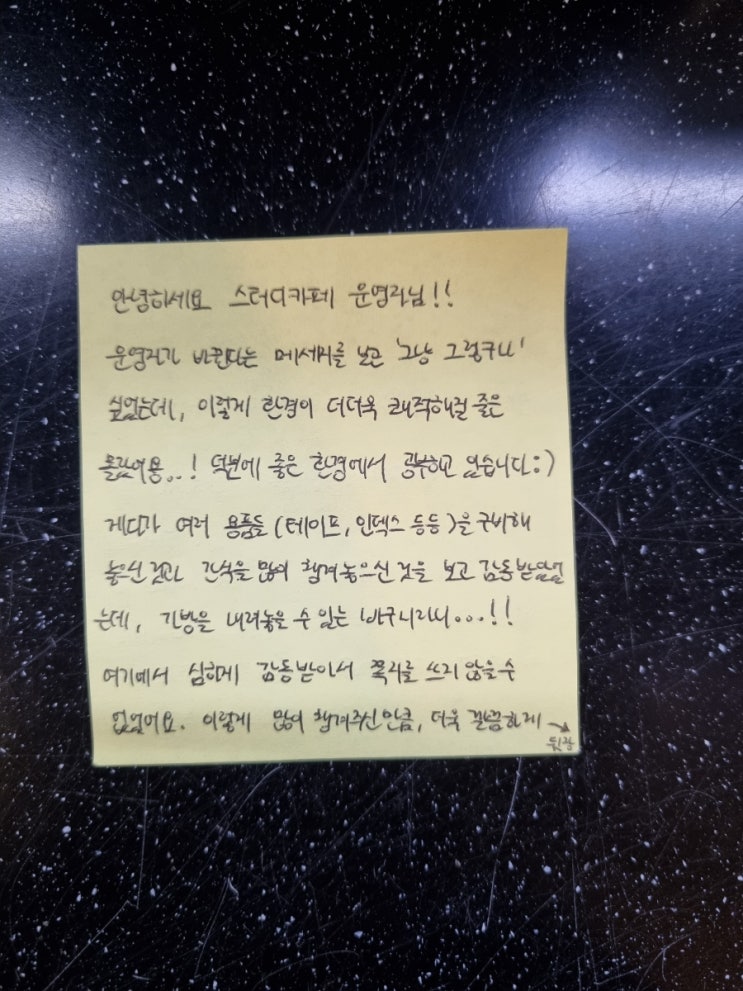 안녕하세요 스터디카페 운영자님!!
운영자가 바뀐다는 메세지를 보고 '그냥 그렇구나'
싶었는데, 이렇게 환경이 더더욱 쾌적해질 줄은
몰랐어용..! 덕분에 좋은 환경에서 공부하고 있습니다:)
게다가 여러 용품들 (테이프, 인덱스 등등)을 구비해
놓으신 것과 간식을 많이 챙겨놓으신 것을 보고 감동받았었
는데, 가방을 내려놓을 수 있는 바구니라니...!!
여기에서 심하게 감동받아서 쪽지를 쓰지 않을 수
없었어요. 이렇게 많이 챙겨주신 만큼, 더욱 깔끔하게 →
뒷장